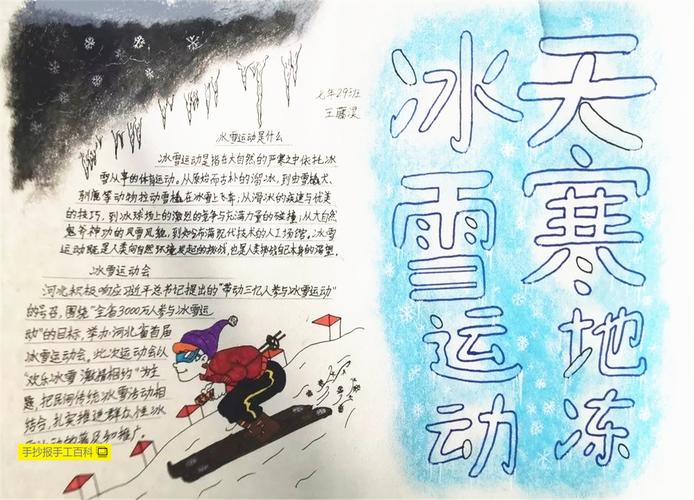 天寒地冻
冰雪运动
七年29班
冰雪运动是什么
冰雪运动是指在大自然的严寒之中依托冰
雪从事的体育运动。从原始而古朴的滑冰,到由雪橇犬、
驯鹿等动物拉动雪橇在冰雪上飞奔;从滑冰的疾速与优美
的技巧,到冰球场上的激烈的竞争与充满力量的碰撞;从大自然
鬼斧神功的风雪风貌,到如今布满现代技术的人工场馆。冰雪
运动既是人类向自然环境发起的挑战,也是人类挑战自己本身的渴望。
冰雪运动会
河北积极响应习近平总书记提出的"带动三亿人参与冰雪运动"
的号召,围绕"全省3000万人参与冰雪运
动"的目标,举办河北省首届
冰雪运动会。此次运动会以
"欢乐冰雪 激情相约"为主
题,把民间传统冰雪活动相
结合,扎实推进群众性冰
运动的普及和推广。
手抄报手工百科